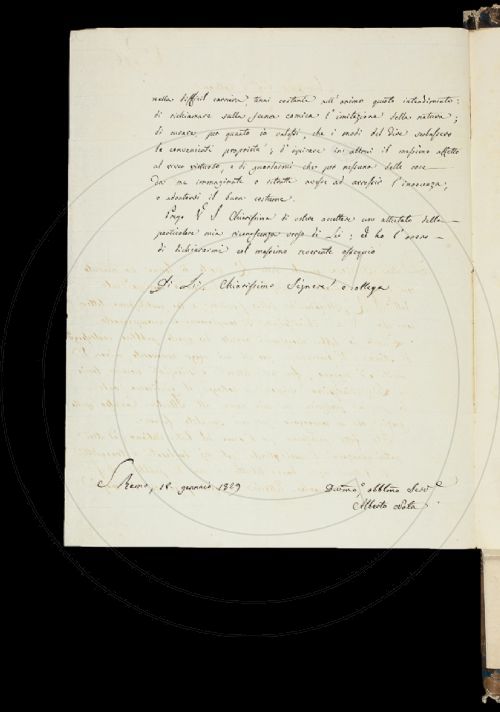 nella difficil carriera tenni costante nell'animo questo intendimento:
di richiamare sulla scena comica l'imitazione della natura;
di curare, per quanto io valessi, che i modi del dire serbassero
la convenienti proprietà; d'ispirare in altrui il massimo affetto
al vivere virtuoso, e di guardarmi che per nessuna delle cose
da me immaginate o scritte avesse ad arrossir l'innocenza,
o adontarsi il buon costume.
Prego V. S. Chiarissima di volere accettare uno attestato della
particolare mia riconoscenza verso di Lei; ed ho l'onore
di dichiararmi col massimo reverente ossequio
Di Lei, Chiarissimo Signore e collega
S. Remo, 18. gennaio 1829
Devmo, obblmo Serv.e
Alberto Nota